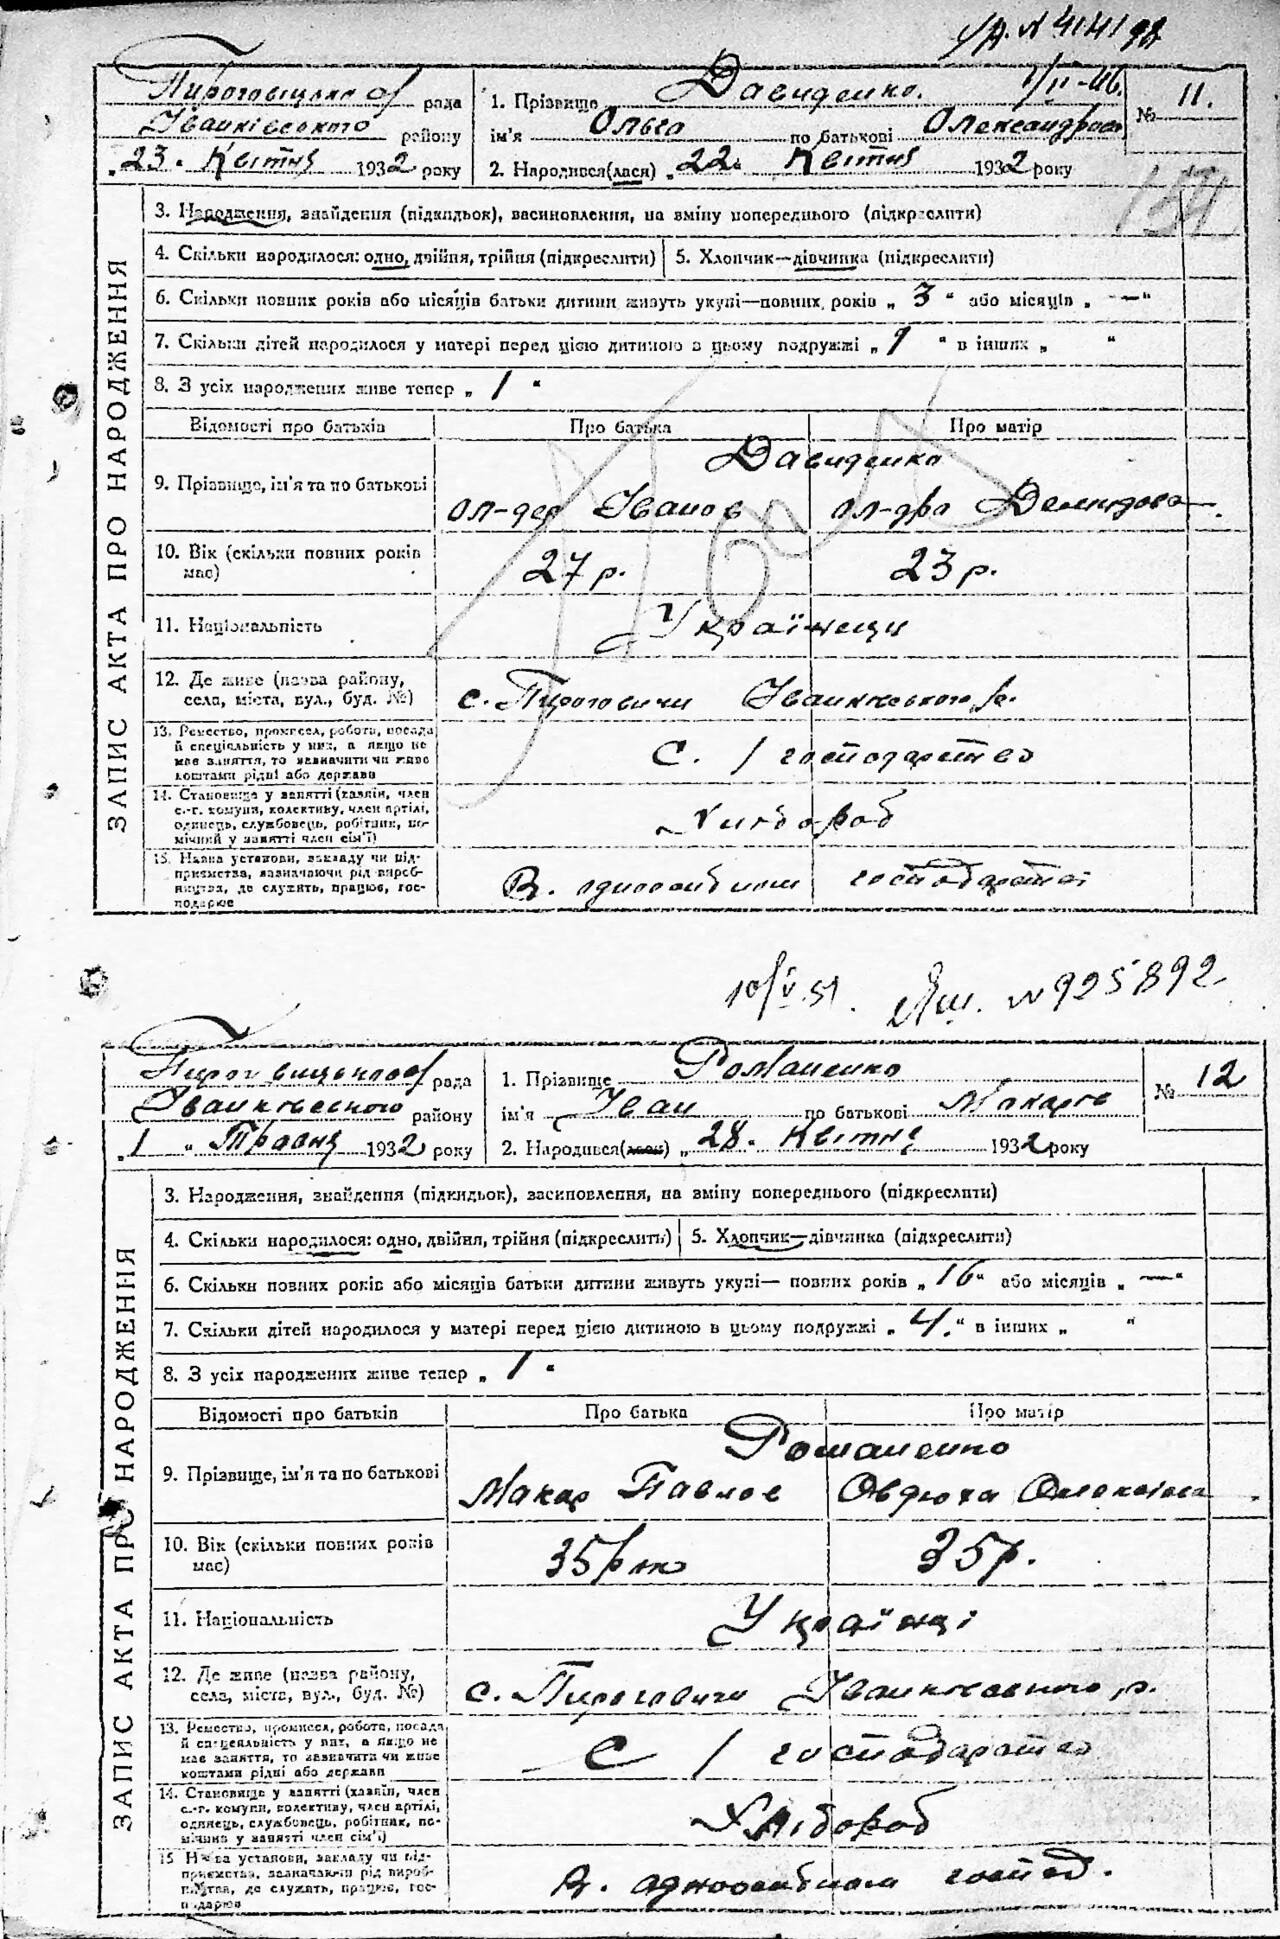 № 4141
Давиденко. 1/II-46.
рада 1. Прізвище № 11.
Іванківського району ім'я Ольга по батькові Олександрівна
„23. Квітня 1932 року 2. Народився(лася) „22" Квітня 1932 року
154
ЗАПИС АКТА ПРО НАРОДЖЕННЯ
3. Народження, знайдення (підкидьок), васиновлення, на вміну попереднього (підкреслити)
4. Скільки народилося: одно, двійня, трійня (підкреслити) 5. Хлопчик—дівчинка (підкреслити)
6. Скільки повних років або місяців батьки дитини живуть укупі—повних років „ 3 " або місяців „ — "
7. Скільки дітей народилося у матері перед цією дитиною в цьому подружжі „ 1 " в інших „ "
8. З усіх народжених живе тепер „ 1 "
Відомості про батьків Про батька Про матір
Давиденко
9. Прізвище, ім'я та по батькові
Ол-дер Іванов Ол-дра Демидова
10. Вік (скільки повних років має) 27 р. 23 р.
11. Національність Українеци
12. Де живе (назва району, села, міста, вул., буд. №) с. Пироговичи Іванківського р.
13. Ремество, промисел, робота, посада
й спеціяльність у них, а якщо не
має заняття, то зазначити чи живе
коштами рідні або держави
С. / господарство
14. Становище у занятті (хазяїн, член
с.-г. комуни, колективу, член артілі,
одинець, службовець, робітник, по-
мічний у занятті член сім'ї)
Хлібороб
15. Назва установи, закладу чи під-
приємства, зазначаючи рід вироб-
ництва, де служить, працює, гос-
подарює
В. одноосібном господарстві
10/V.51. № 925892
Романенко
рада 1. Прізвище № 12
Іванківського району ім'я Іван по батькові Макарів
„1 " Травня 1932 року 2. Народився(лася) „28. Квітня 1932 року
ЗАПИС АКТА ПРО НАРОДЖЕННЯ
3. Народження, знайдення (підкидьок), засиновлення, на вміну попереднього (підкреслити)
4. Скільки народилося: одно, двійня, трійня (підкреслить) 5. Хлопчик—дівчинка (підкреслити)
6. Скільки повних років або місяців батьки дитини живуть укупі— повних років „ 16 " або місяців „ — "
7. Скільки дітей народилося у матері перед цією дитиною в цьому подружжі „ 4. " в інших „ "
8. З усіх народжених живе тепер „ 1 "
Відомості про батьків Про батька Про матір
Романенко
9. Прізвище, ім'я та по батькові
Макар Павлов Овдюха
10. Вік (скільки повних років має) 35 35 р.
11. Національність Українці
12. Де живе (назва району, села, міста, вул., буд. №) с. Пироговичи Іванківського р.
13. Ремество, промисел, робота, посада
й спеціяльність у них, а якщо не
має заняття, то зазначити чи живе
коштами рідні або держави
С / господарство
14. Становище у занятті (хазяїн, член
с.-г. комуни, колективу, член артілі,
одинець, службовець, робітник, по-
мічний у занятті член сім'ї)
Хлібороб
15 Назва установи, закладу чи під-
приємства, зазначаючи рід вироб-
ництва, де служить, працює, гос-
подарює
В. одноосібном господ.